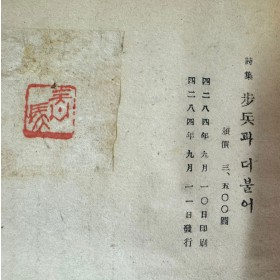 詩集 步兵과 더불어
頒價 三、五〇〇圓
四二八四年九月一〇日印刷
四二八四年九月一一日發行